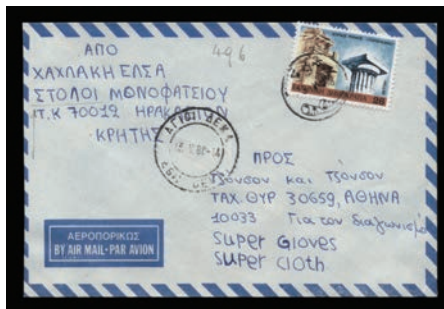 ΑΠΟ
496
ΧΑΧΛΑΚΗ ΕΛΣΑ
ΣΤΟΛΟΙ ΜΟΝΟΦΑΤΣΙΟΥ
Π.Κ 70012 ΗΡΑΚΛΕΙΟΝ
ΚΡΗΤΗΣ
ΑΓΙΟΙ ΔΕΚΑ
ΠΡΟΣ
Τζόνσον και Τζόνσον
ΤΑΧ. ΘΥΡ 30659, ΑΘΗΝΑ
10033 Για τον διαγωνισμό
Super Gloves
Super Cloth
ΑΕΡΟΠΟΡΙΚΩΣ
BY AIR MAIL-PAR AVION